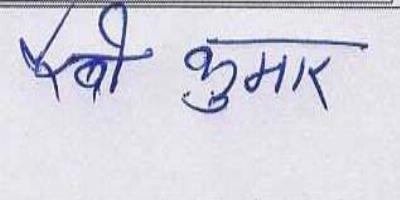 रवी कुमार